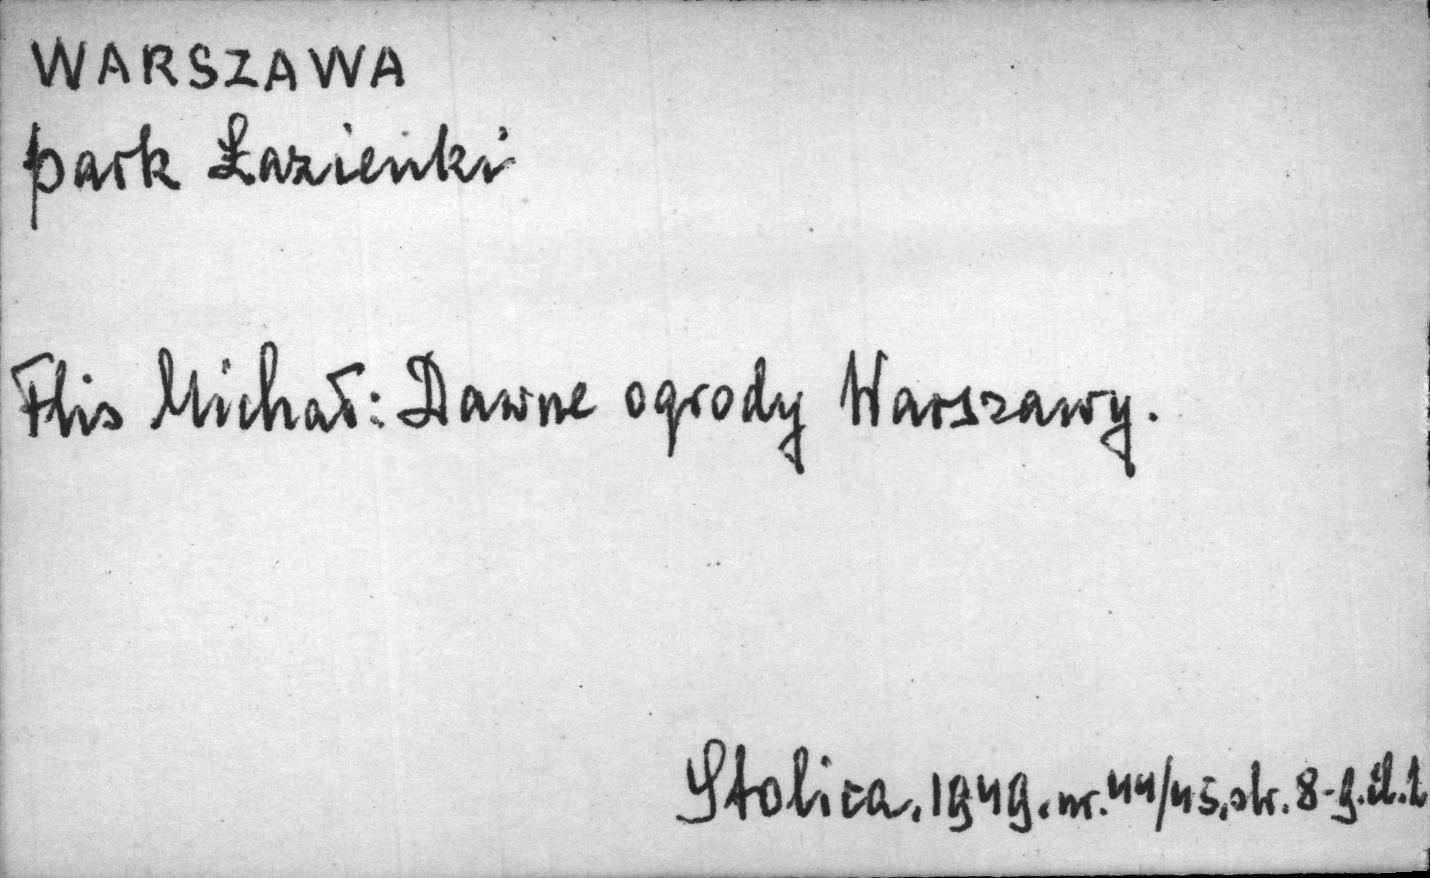 WARSZAWA
park Łazienki
Flis Michał: Dawne ogrody Warszawy.
Stolica. 1949. nr. 44/45. str. 8-9. il.